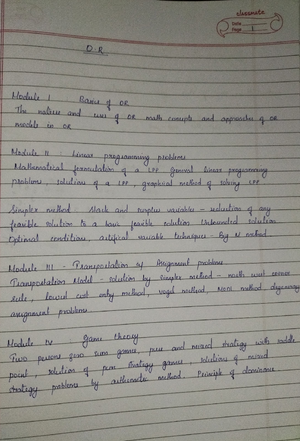 classmate
Date
Page 1
O.R
Module I Basics of OR
The nature and uses of OR math concepts and approaches of OR
models in OR
Module II - Linear programming problems
Mathematical formulation of a LPP general linear programming
problems, solution of a LPP, graphical method of solving LPP
Simplex method - Slack and surplus variables - reduction of any
feasible solution to a basic feasible solution Unbounded solution
Optimal conditions, artificial variable techniques - Big M method.
Module III - Transportation & Assignment problems
Transportation Model - solution by simplex method - north west corner
rule, lowest cost entry method, vogel method, MODI method degeneracy
assignment problems
Module IV Game theory
Two persons zero sum games, pure and mixed strategy with saddle
point, solution of pure strategy games, solutions of mixed
strategy problems by arithmetic method. Principle of dominance